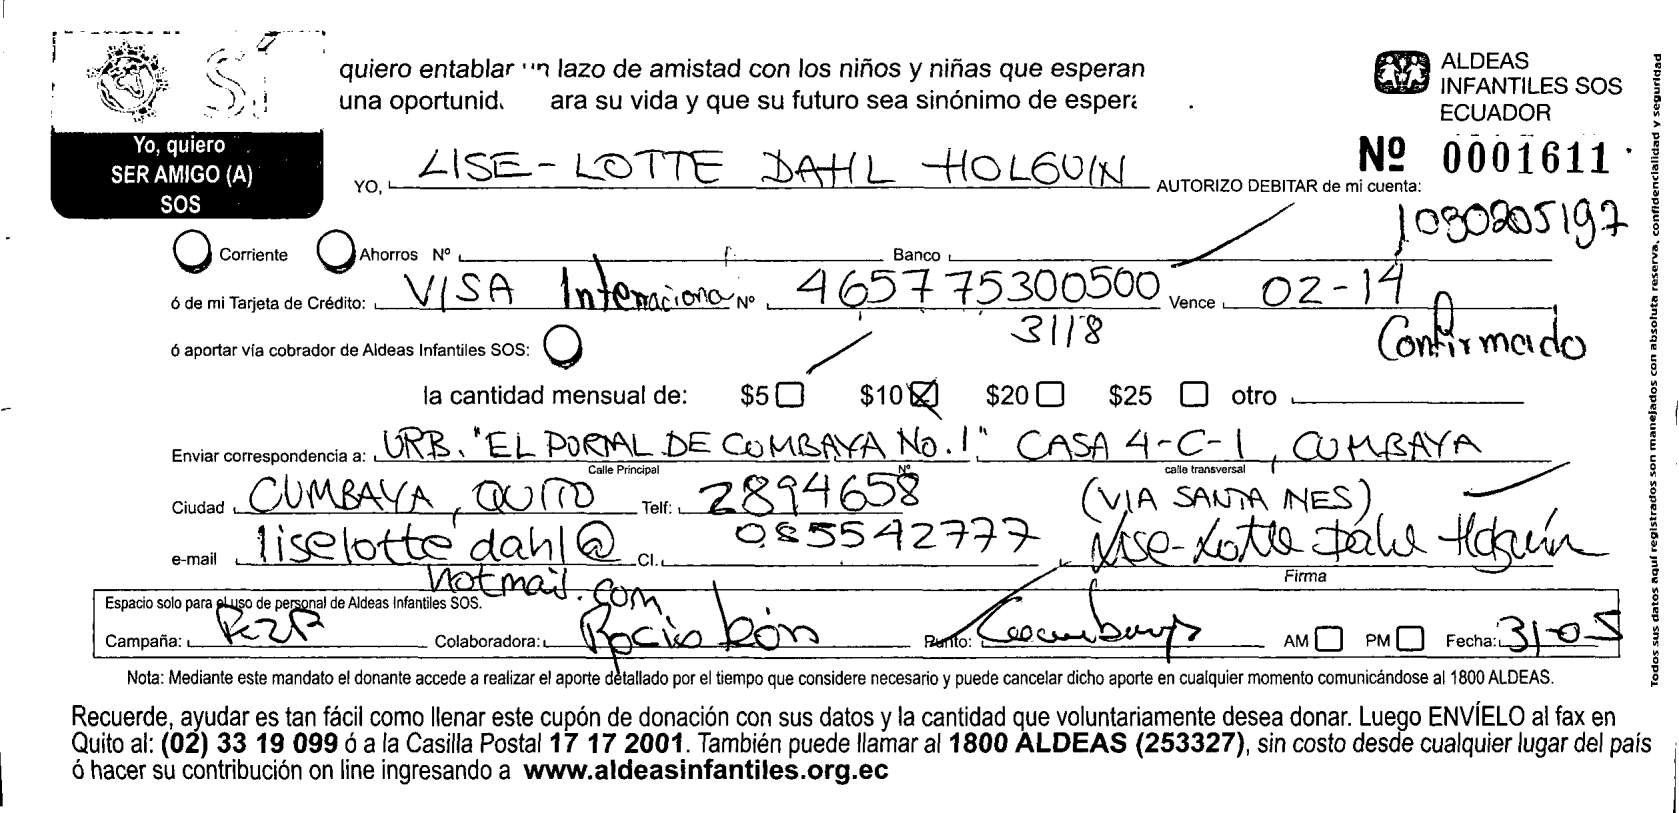 Sí quiero entablar un lazo de amistad con los niños y niñas que esperan
una oportunid ara su vida y que su futuro sea sinónimo de esper
ALDEAS
INFANTILES SOS
ECUADOR
Yo, quiero
SER AMIGO (A)
SOS
Nº 0001611
YO, LISE-LOTTE DAHL HOLGUIN AUTORIZO DEBITAR de mi cuenta:
1080205197
Corriente Ahorros Nº Banco
ó de mi Tarjeta de Crédito: VISA Internaciona Nº 465775300500 Vence 02-14
3118
Confirmado
ó aportar vía cobrador de Aldeas Infantiles SOS:
la cantidad mensual de: $5 $10 $20 $25 otro
Enviar correspondencia a: URB. "EL PORTAL DE CUMBAYA No. 1" CASA 4-C-1, CUMBAYA
Calle Principal Nº calle transversal
Ciudad CUMBAYA, QUITO Telf: 2894658 (VIA SANTA INES)
e-mail liselottedahl@ CI. 085542777 Lise-Lotte Dahl Holguín
hotmail.com
Firma
Espacio solo para el uso de personal de Aldeas Infantiles SOS.
Campaña: Colaboradora: Rocío León Punto: AM PM Fecha: 31-05
Nota: Mediante este mandato el donante accede a realizar el aporte detallado por el tiempo que considere necesario y puede cancelar dicho aporte en cualquier momento comunicándose al 1800 ALDEAS.
Recuerde, ayudar es tan fácil como llenar este cupón de donación con sus datos y la cantidad que voluntariamente desea donar. Luego ENVÍELO al fax en
Quito al: (02) 33 19 099 ó a la Casilla Postal 17 17 2001. También puede llamar al 1800 ALDEAS (253327), sin costo desde cualquier lugar del país
ó hacer su contribución on line ingresando a www.aldeasinfantiles.org.ec
Todos sus datos aquí registrados son manejados con absoluta reserva, confidencialidad y seguridad